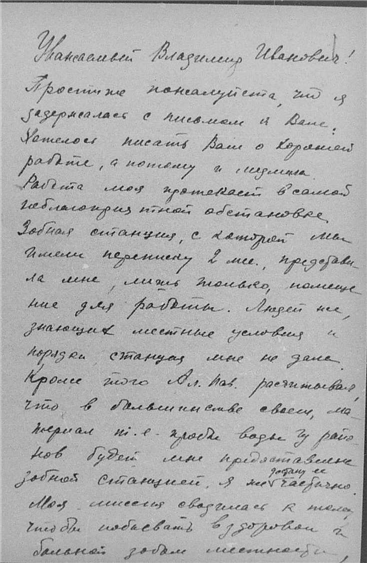 Уважаемый Владимир Иванович!
Простите пожалуйста, что я
задержалась с письмом к Вам.
Хотелось писать Вам о хорошей
работе, а потому и медлила.
Работа моя протекает в самой
неблагоприятной обстановке.
Зобная станция, с которой мы
имели переписку 2 мес., предостави
ла мне, лишь только, помеще
ние для работы. Людей не,
знающих местные условия и
порядки станция мне не дала.
Кроме того Ал. Пав. расчитывал,
что в большинстве своем, ма
териал т.е. пробы воды из райо
нов будет мне предоставлен
зобной станцией.
Моя миссия сводилась к тому,
чтобы побывать в здоровой и
больной зобом местности,